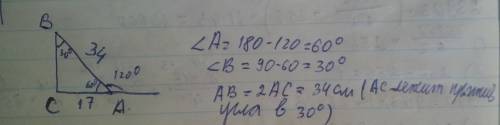 B
30°
34
60°
120°
C
17
A.
∠A = 180-120 = 60°
∠B = 90-60 = 30°
AB = 2AC = 34см (AC лежит против
угла в 30°)